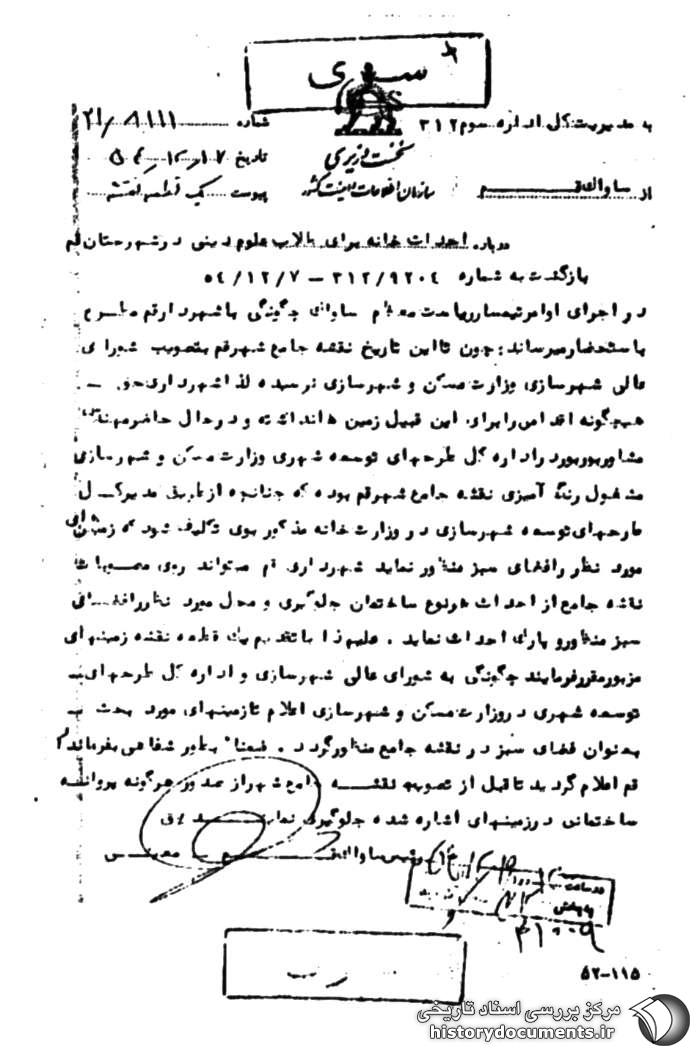 سری
به مدیریت کل اداره سوم ۳۱۲
شماره ۲۱/۸۱۱۱
از ساواک قم
نخست وزیری
سازمان اطلاعات و امنیت کشور
تاریخ
پیوست یک قطعه نقشه
درباره احداث خانه برای طلاب علوم دینی در شهرستان قم
بازگشت به شماره ۳۱۲/۹۲۰۴ – ۵۴/۱۲/۷
در اجرای اوامر تیمسار ریاست معظم ساواک چگونگی با شهردار قم مطرح
باستحضار میرساند: چون تا این تاریخ نقشه جامع شهر قم بتصویب شورای
عالی شهرسازی وزارت مسکن و شهرسازی نرسیده لذا شهرداری حق –
هیچگونه اقدامی را برای این قبیل زمین ها نداشته و در حال حاضر مهندسین
مشاور در اداره کل طرحهای توسعه شهری وزارت مسکن و شهرسازی
مشغول رنگ آمیزی نقشه جامع شهر قم بوده که چنانچه از طریق مدیرکل
طرحهای توسعه شهرسازی در وزارت خانه مذکور بوی تکلیف شود که زمینهای
مورد نظر را فضای سبز منظور نماید شهرداری قم میتواند روی مصوبات
نقشه جامع از احداث هر نوع ساختمان جلوگیری و محل مورد نظر را فضای
سبز منظور و پارک احداث نماید . علیهذا با تقدیم یک قطعه نقشه زمینهای
مزبور مقرر فرمایند چگونگی به شورای عالی شهرسازی و اداره کل طرحهای –
توسعه شهری در وزارت مسکن و شهرسازی اعلام تا زمینهای مورد بحث به
عنوان فضای سبز در نقشه جامع منظور گردد . ضمنا" بطور شفاهی بفرماندار
قم اعلام گردید تا قبل از تصویب نقشه جامع شهر از صدور هرگونه پروانه
ساختمانی در زمینهای اشاره شده جلوگیری نماید
رئیس ساواک قم – معینی
در ساعت
به بخش
۳۱۰۰۹
۵۲-۱۱۵
مرکز بررسی اسناد تاریخی
historydocuments.ir